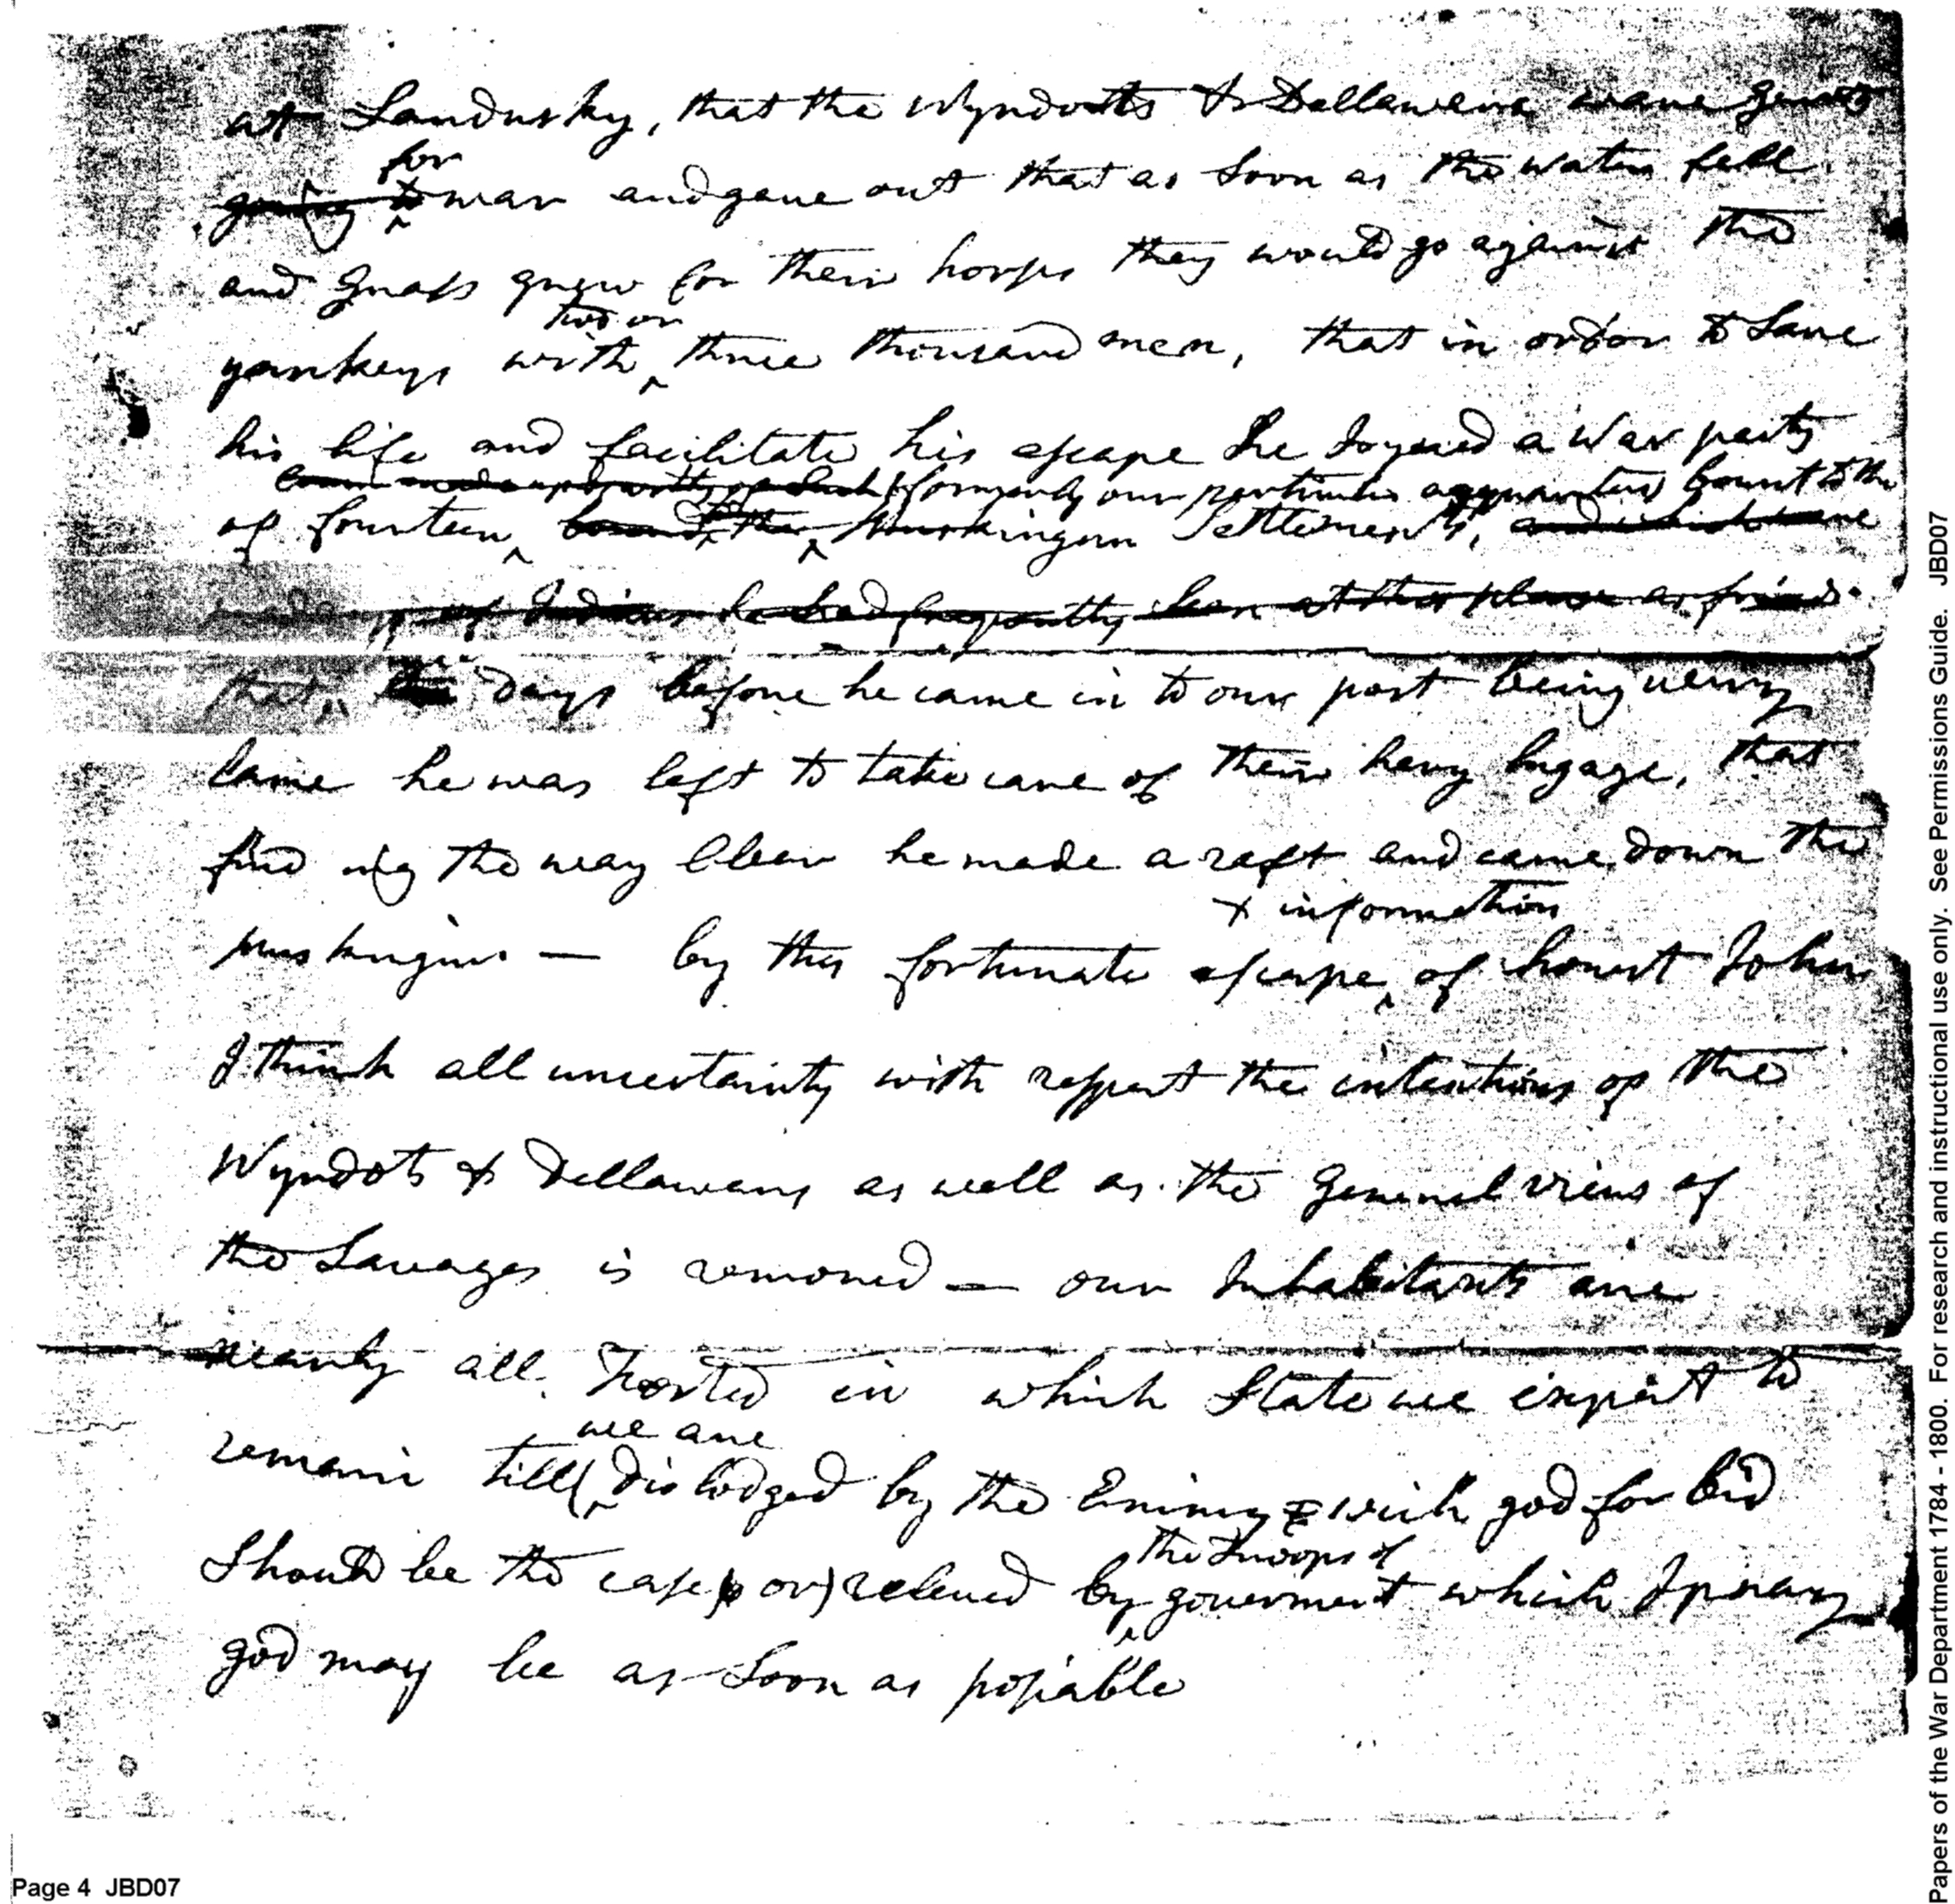 at Sandusky, that the Wyndotts & Dellawars ware
for
going to war and gave out that as Soon as the waters fell
and Grass grew for their horses they would go against the
two or
yankeys with three thousand men, that in order to Save
his life and facilitate his escape he Joyned a War party
(formerly our perticuler bount to the
of fourteen Muskingum Settlements,
up of Indians he had frequently been at this place as friends
that days before he came in to our post being very
lame he was left to take care of their hevy bagage, that
find ing the way Clear he made a raft and came down the
& information
muskingum — by this fortunate escape of honest John
I think all uncertainty with respect the intentions of the
Wyndots & Dellawars as well as the General views of
the Savages is removed — our Inhabitants are
nearly all Forted in which State we expect to
we are
remain till dis lodged by the Enimy wich god for bid
the Troops of
Should be the case or) releved by goverment which I pray
god may be as Soon as posiable
Page 4 JBD07
Papers of the War Department 1784 - 1800. For research and instructional use only. See Permissions Guide. JBD07